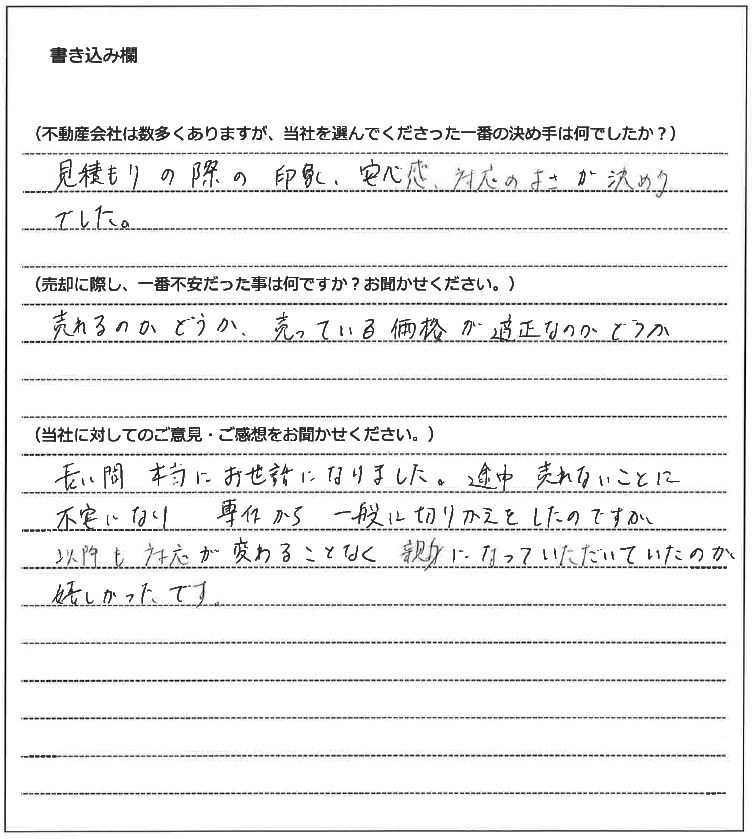 書き込み欄
（不動産会社は数多くありますが、当社を選んでくださった一番の決め手は何でしたか？）
見積もりの際の印象、安心感、対応のよさが決め手
でした。
（売却に際し、一番不安だった事は何ですか？お聞かせください。）
売れるのかどうか、売っている価格が適正なのかどうか
（当社に対してのご意見・ご感想をお聞かせください。）
長い間 本当にお世話になりました。途中 売れないことに
不安になり 専任から 一般に切りかえをしたのですが、
以降も対応が変わることなく親身になっていただいていたのが
嬉しかったです。